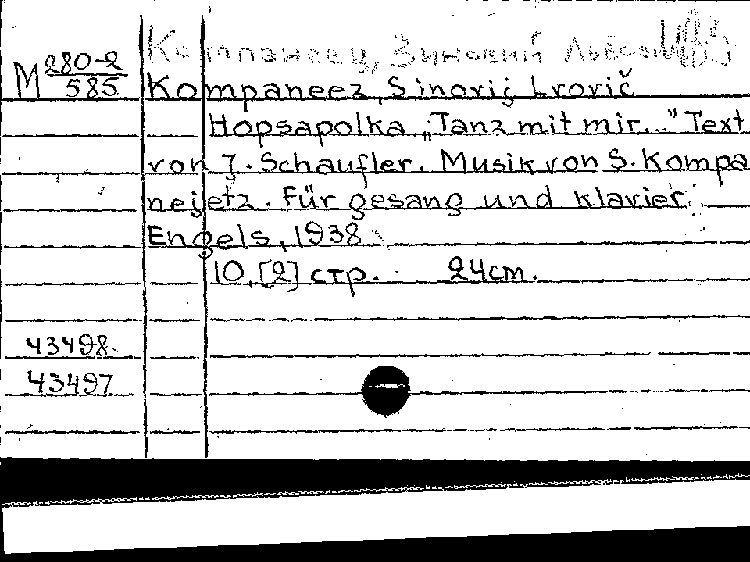 Компанеец, Зиновий Львович
М 280-2
585
Kompaneez, Sinovij Lvovič
Hopsapolka „Tanz mit mir..." Text
von J. Schaufler. Musik von S. Kompa
nejetz. Für gesang und klavier.
Engels, 1938
10, [2] стр. 24cm.
43498.
43497